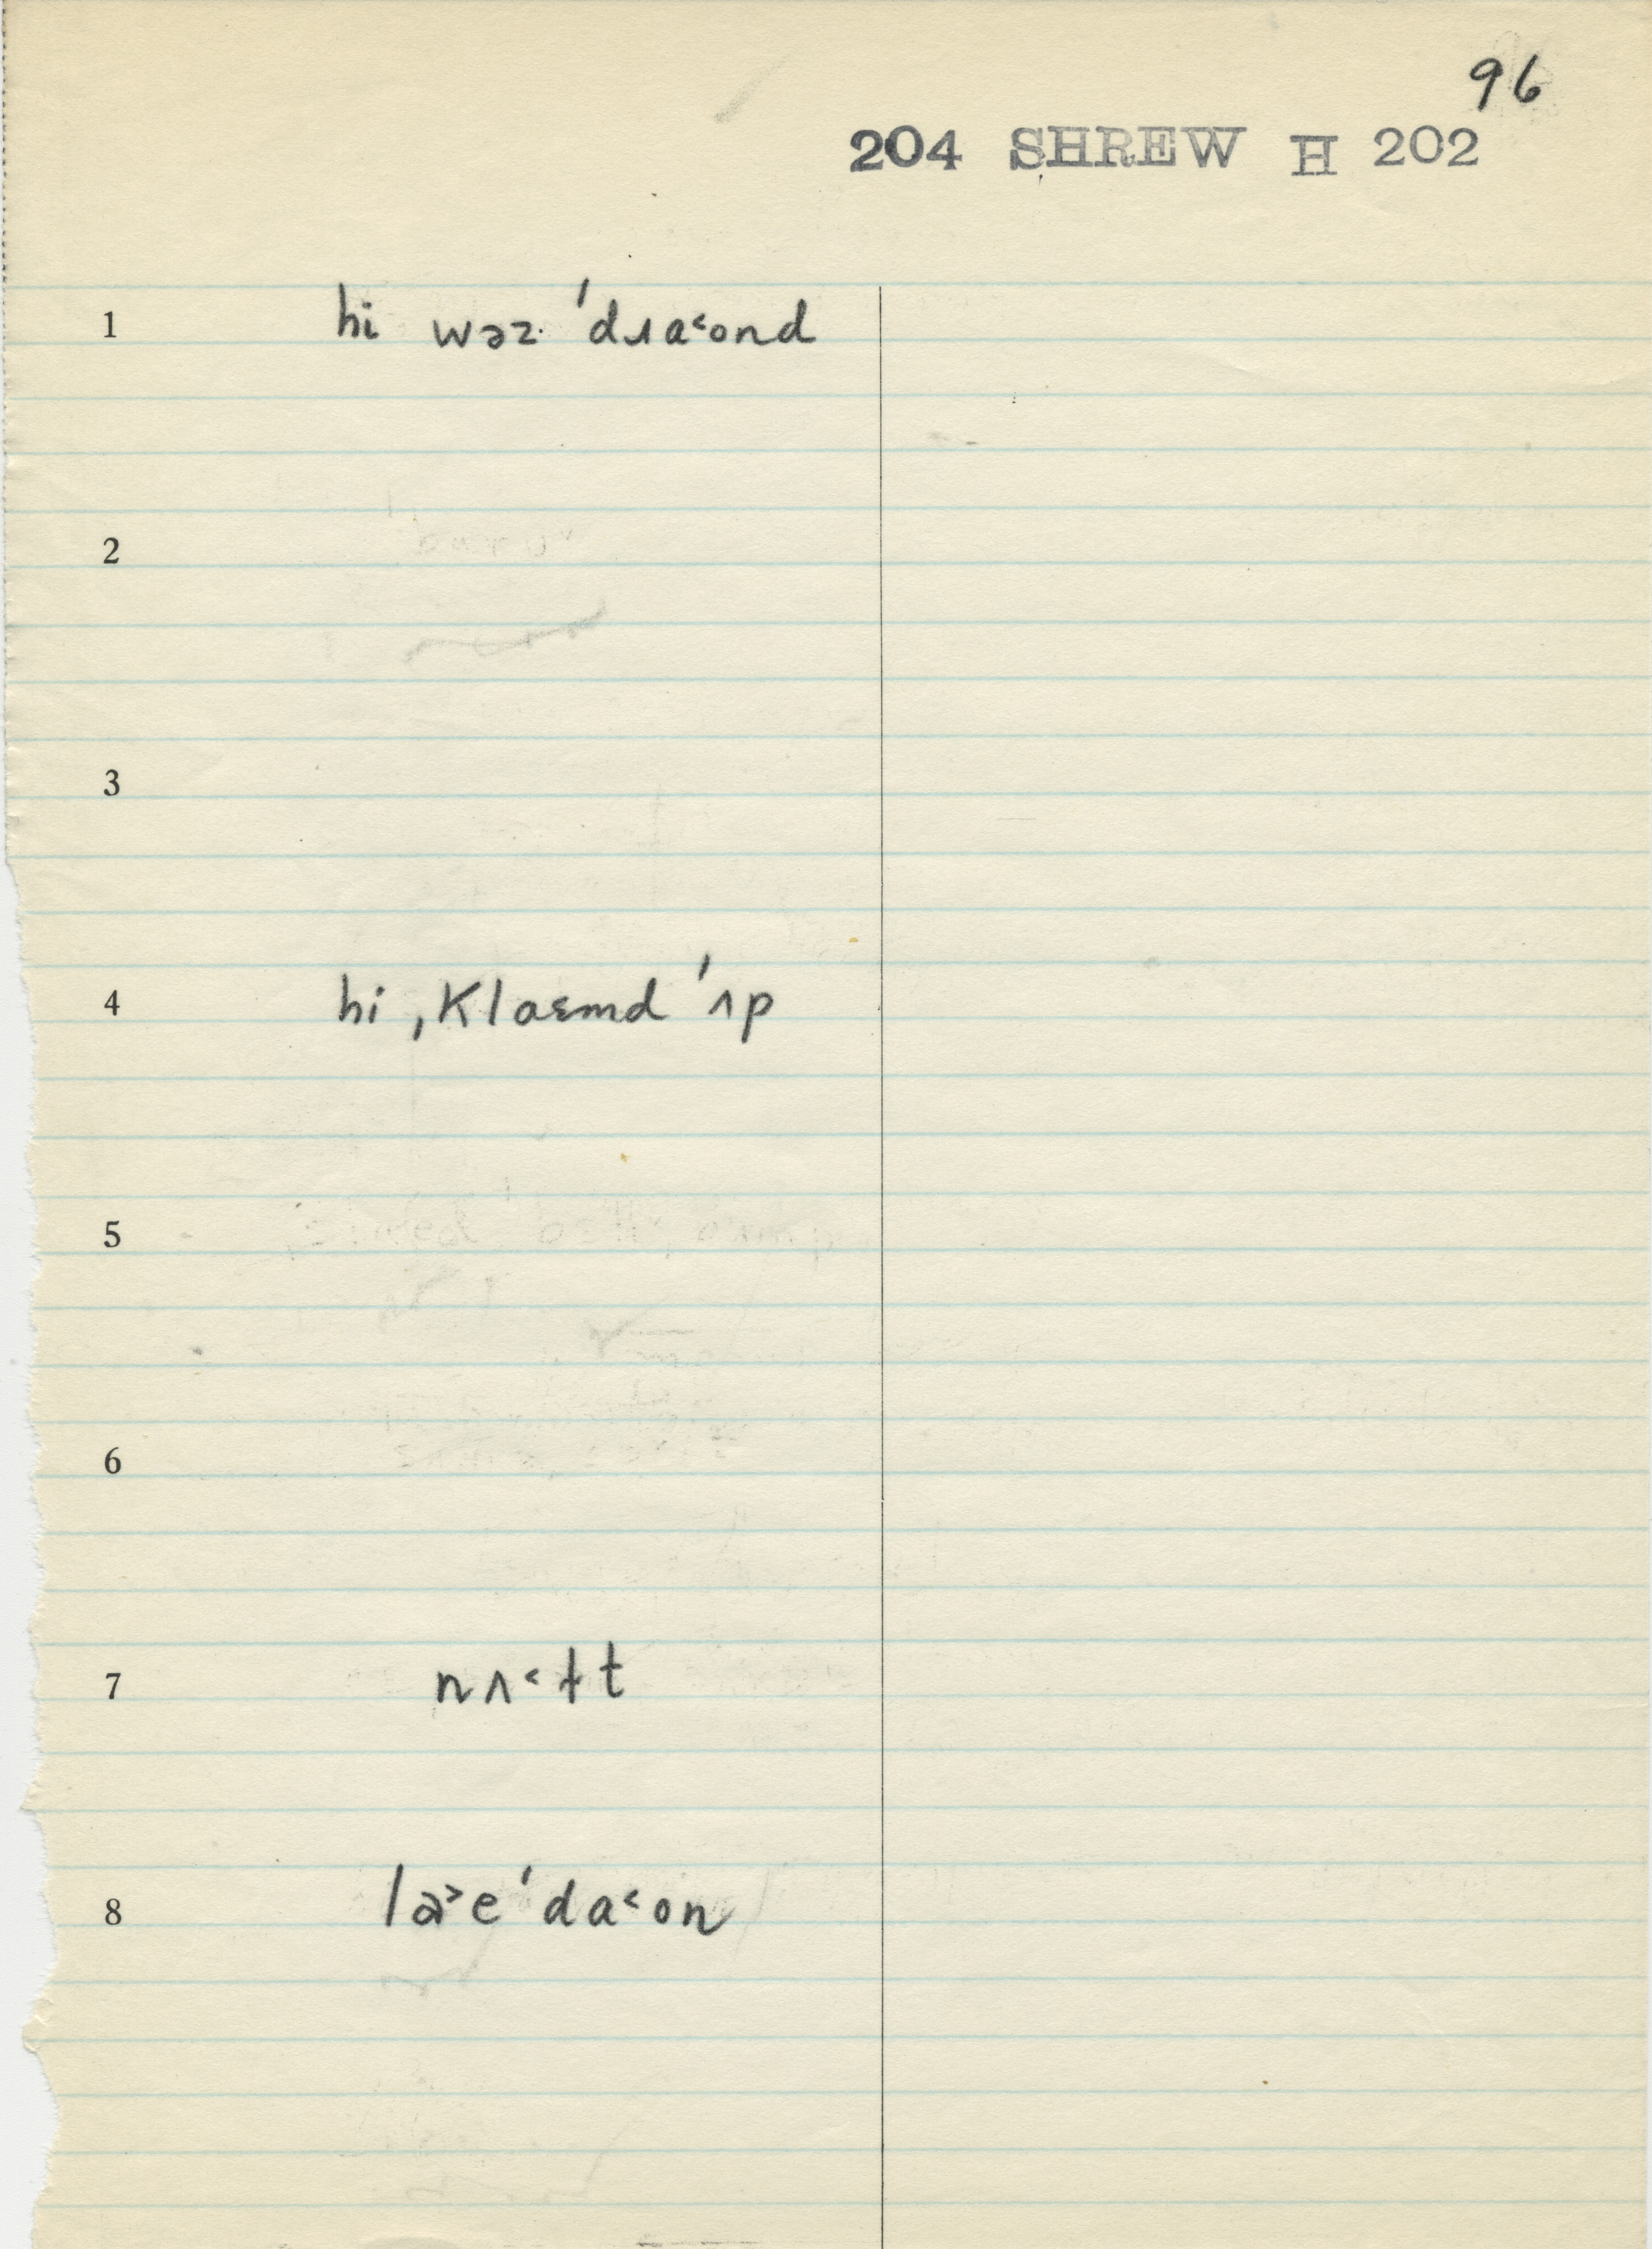 96
204 SHREW H 202
1 hi wəz ˈdɹa˂ond
2
3
4 hi ˌklaɛmd ˈʌp
5
6
7 nʌ˂ɫt
8 la˃e ˈda˂on